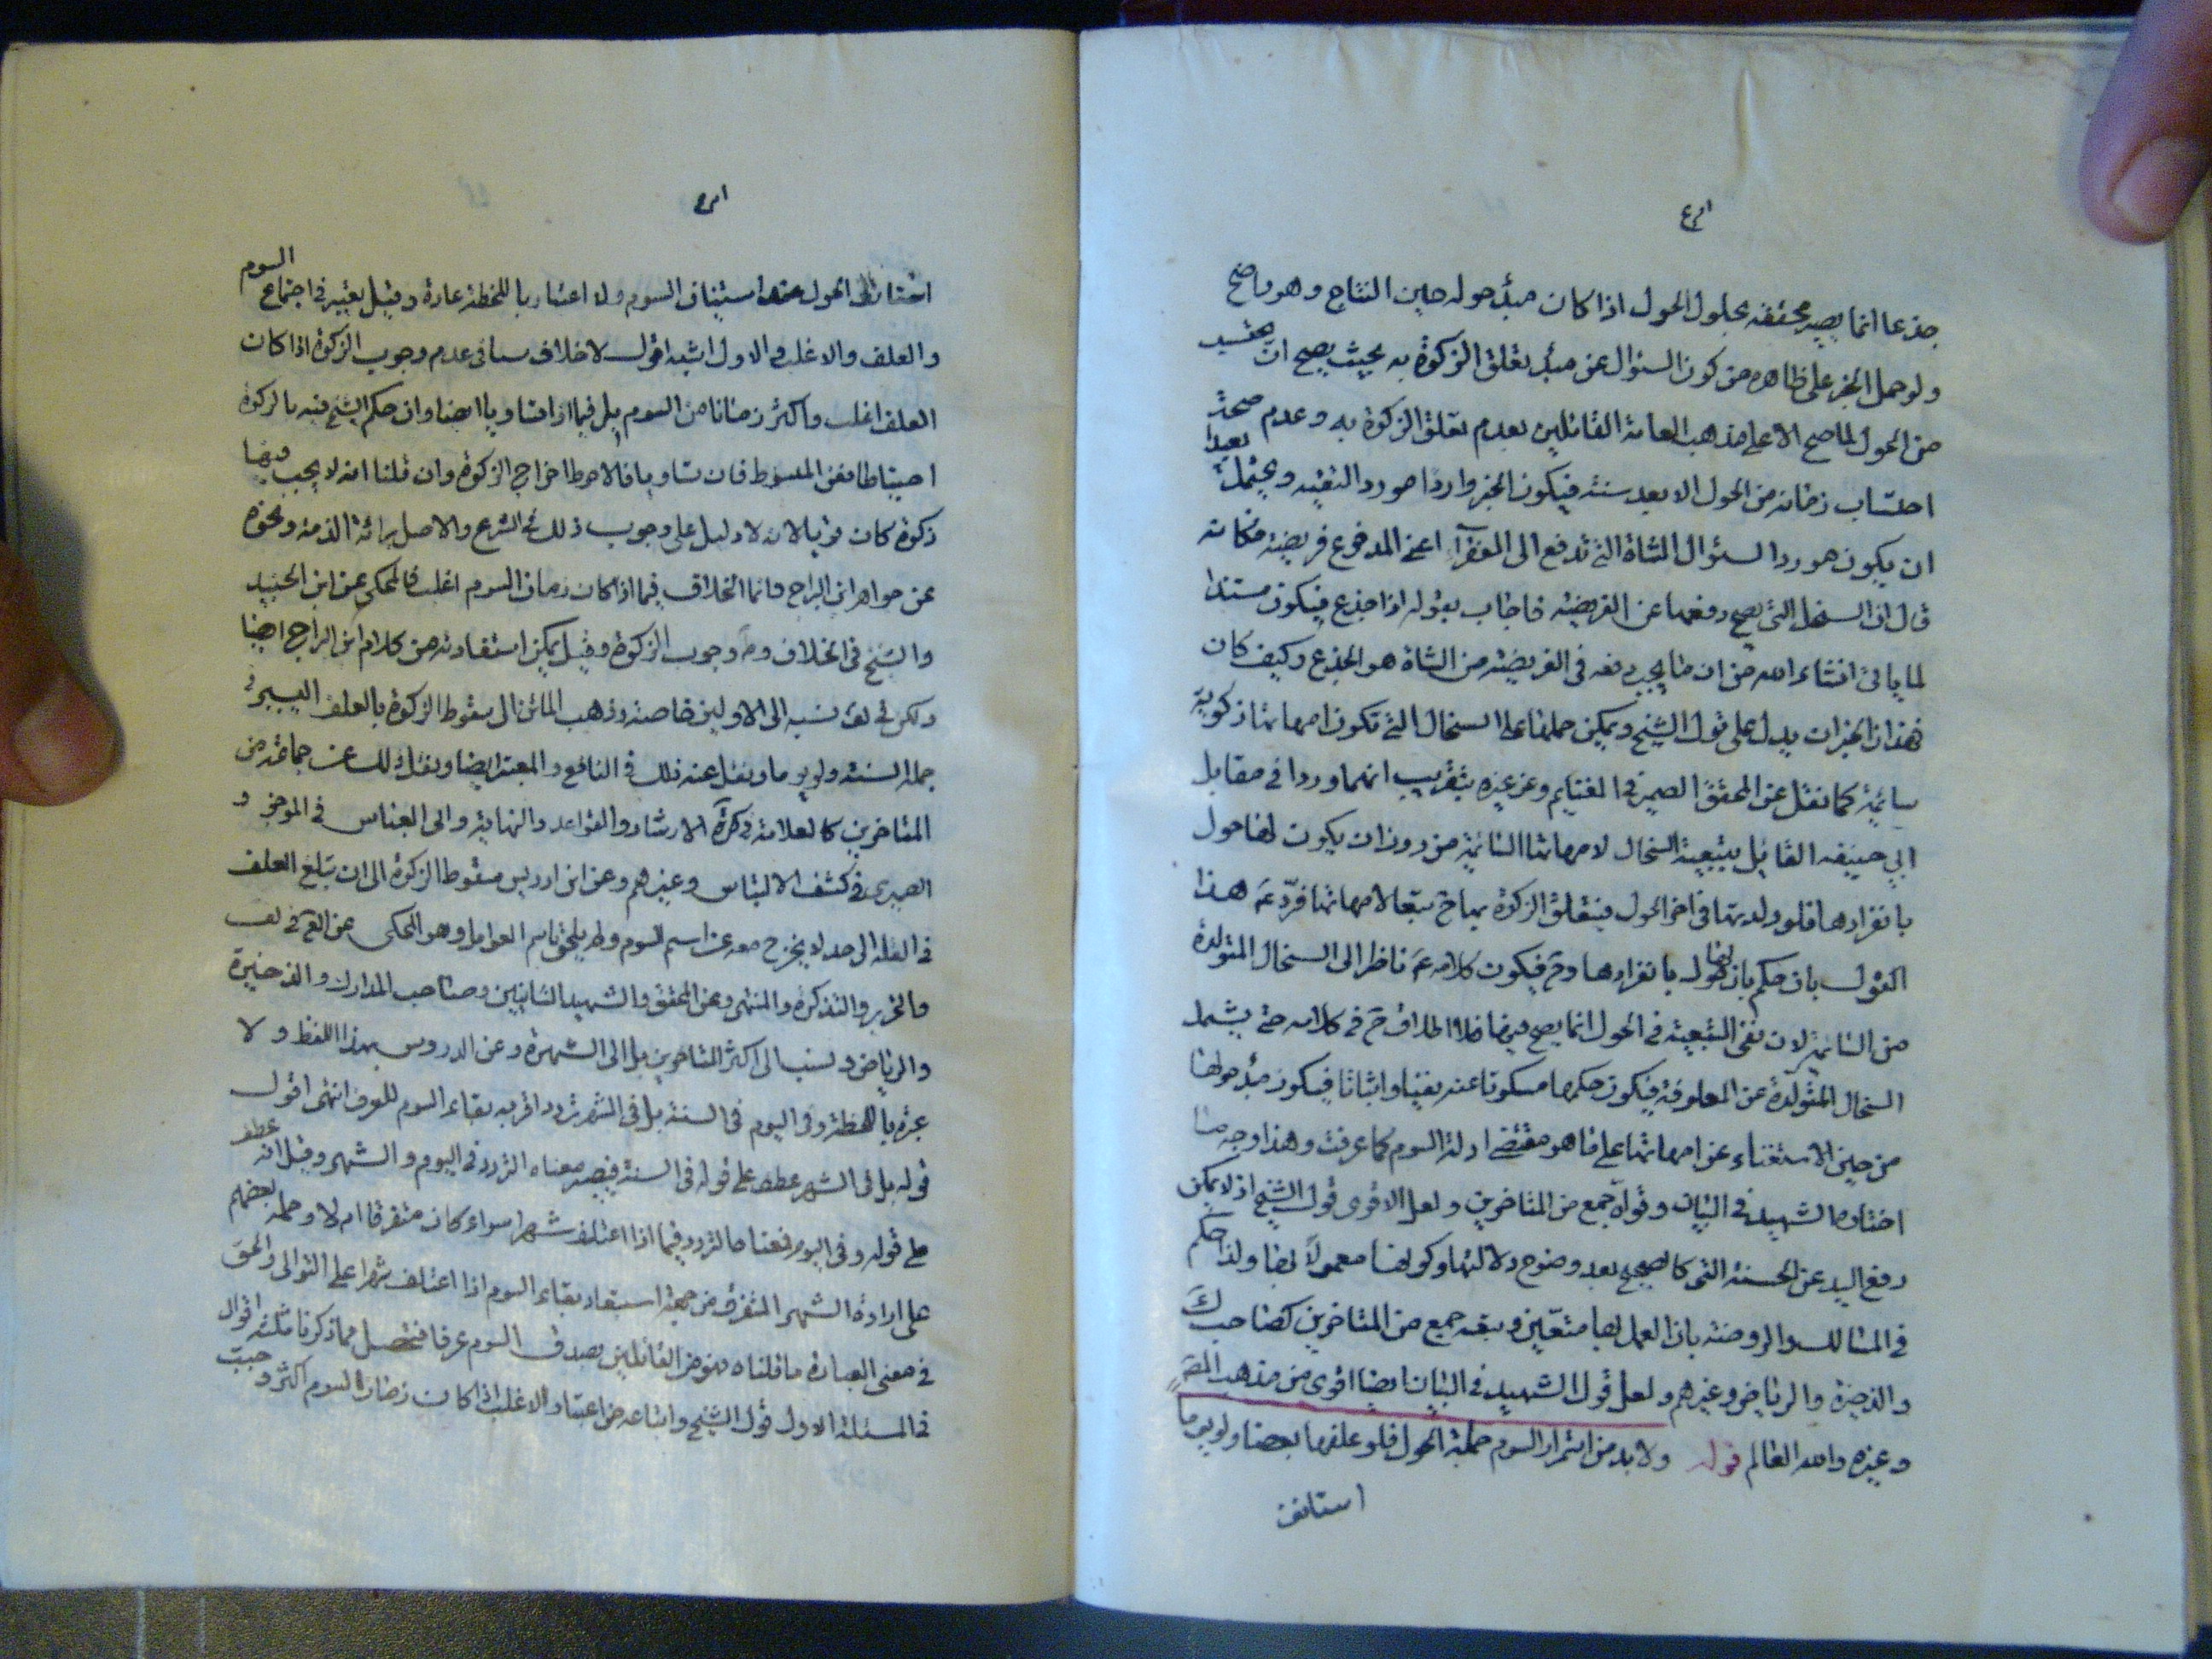 جذعا انما يصير محققه بحلول الحول اذا كان مبدأ حوله حين النتاج وهو واضح
ولو حمل الخبر على ظاهره من كون السئوال عن مبدأ تعلق الزكوة به بحيث يصح ان يحتسب
من الحول لما صح الا على مذهب العامة القائلين بعدم تعلق الزكوة به وعدم صحة
احتساب زمانه من الحول الا بعد سنة فيكون الخبر واردا مورد التقية ويحتمل بعيدا
ان يكون مورد السئوال الشاة التى تدفع الى الفقرآء اعنى المدفوع فريضة فكانه
قال ان السخل التى يصح دفعها عن الفريضة فاجاب بقوله اذا جذع فيكون مستندا
لما ياتى انشاء الله من ان ما يجب دفعه فى الفريضة من الشاة هو الجذع وكيف كان
فهذان الخبران يدل على قول الشيخ ويمكن حملها على السخال التى تكون امهاتها زكوية
سائمة كما نقل عن المحقق الصيمرى المغتايم وعن غيره بتقريب انهما وردا فى مقابل
ابى حنيفه القايل بتبعية السخال لامهاتها السائمة من دون ان يكون لها حول
بانفرادها فلو ولدتها فى اخر الحول فيتعلق الزكوة بها ح تبعا لامهاتها فردّ ع هذا
القول بان حكم بان لها حول بانفرادها وح فيكون كلامه ع ناظرا الى السخال المتولدة
من السائمة لان نفى التبعية فى الحول انما يصح فيها فلا اطلاق ح فى كلامه حتى يشمل
السخال المتولدة عن المعلوفة فيكون حكمها مسكوتا عنه نفيا واثباتا فيكون مبدأ حولها
من حين الاستغناء عن امهاتها على ما هو مقتضى ادلة السوم كما عرفت وهذا وجه ما
اختاره الشهيد فى البيان وقواه جمع من المتاخرين ولعل الاقوى قول الشيخ اذ لا يمكن
رفع اليد عن الحسنة التى كالصحيح بعد وضوح دلالتها وكونها معمولا بها ولذا حكم
فى المسالك والروضة بان العمل بها متعين وتبعه جمع من المتاخرين كصاحب ك
والذخيرة والرياض وغيرهم ولعل قول الشهيد فى البيان ايضا اقوى من مذهب المص
وغيره والله العالم قوله ولا بد من استمرار السوم جملة الحول فلو علفها بعضا ولو يوما
استانف
استانف الحول عند استيناف السوم ولا اعتبار باللحظة عادة وقيل يعتبر فى اجتماع السوم
والعلف والاغلب والاول اشبه اقول لا خلاف منا فى عدم وجوب الزكوة اذا كان
العلف اغلب واكثر زمانا من السوم بل فيما اذا تساويا ايضا وان حكم الشيخ فيه بالزكوة
احتياطا فعن المبسوط فان تساويا فالاحوط اخراج الزكوة وان قلنا انه لا يجب فيها
زكوة كان قويا لانه لا دليل على وجوب ذلك فى الشرع والاصل برائة الذمة ونحوه
عن جواهر ابن البراج وانما الخلاف فيما اذا كان زمان السوم اغلب فالمحكى عن ابن الجنيد
والشيخ فى الخلاف وط وجوب الزكوة وقيل يمكن استفادته من كلام ابن البراج ايضا
ولكن فى لف نسبه الى الاولين خاصة وذهب الماتن الى سقوط الزكوة بالعلف اليسير فى
جملة السنة ولو يوما ونقل عنه ذلك فى النافع والمعتبر ايضا ونقل ذلك عن جماعة من
المتاخرين كالعلامة فى كرة والارشاد والقواعد والنهاية وابى العباس فى الموجز و
الصيمرى فى كشف الالتباس وغيرهم وعن ابن ادريس سقوط الزكوة الى ان تبلغ العلف
فى القلة الى حد لا يخرج معه عن اسم السوم ولم يلحق باسم العوامل وهو المحكى عن الع فى لف
والتحرير والتذكرة والمنتهى وعن المحقق والشهيد الثانيين وصاحب المدارك والذخيرة
والرياض ونسب الى اكثر المتاخرين بل الى الشهرة وعن الدروس بهذا اللفظ ولا
عبرة باللحظة وفى اليوم فى السنة بل فى الشهر تردد اقربه بقاء السوم للعرف انتهى اقول
قوله بل فى الشهر عطف على قوله فى السنة فيصير معناه التردد فى اليوم والشهر وقيل انه عطف
على قوله وفى اليوم فمعناه التردد فيما اذا اعتلف شهرا سواء كان متفرقا ام لا وحمله بعضهم
على ارادة الشهر المتفرق من جهة استبعاد بقاء السوم اذا اعتلف شهرا على التوالى والحق
فى معنى العبارة ما قلناه فهو من القائلين بصدق السوم عرفا فتحصل مما ذكرنا ثلثة اقوال
فى المسئلة الاول قول الشيخ واتباعه من اعتبار الاغلب اذا كان زمان السوم اكثر وجبت